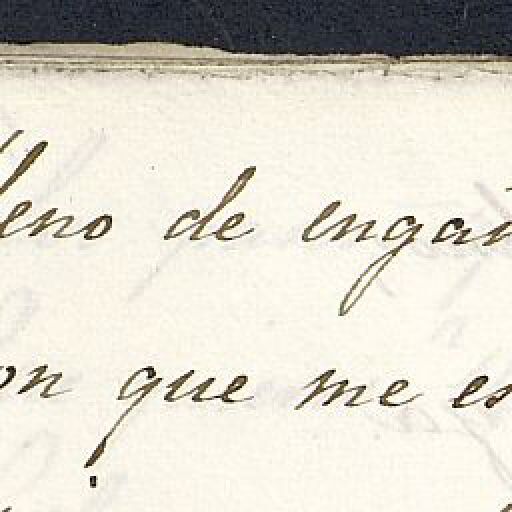 lleno de engañ
on que me es